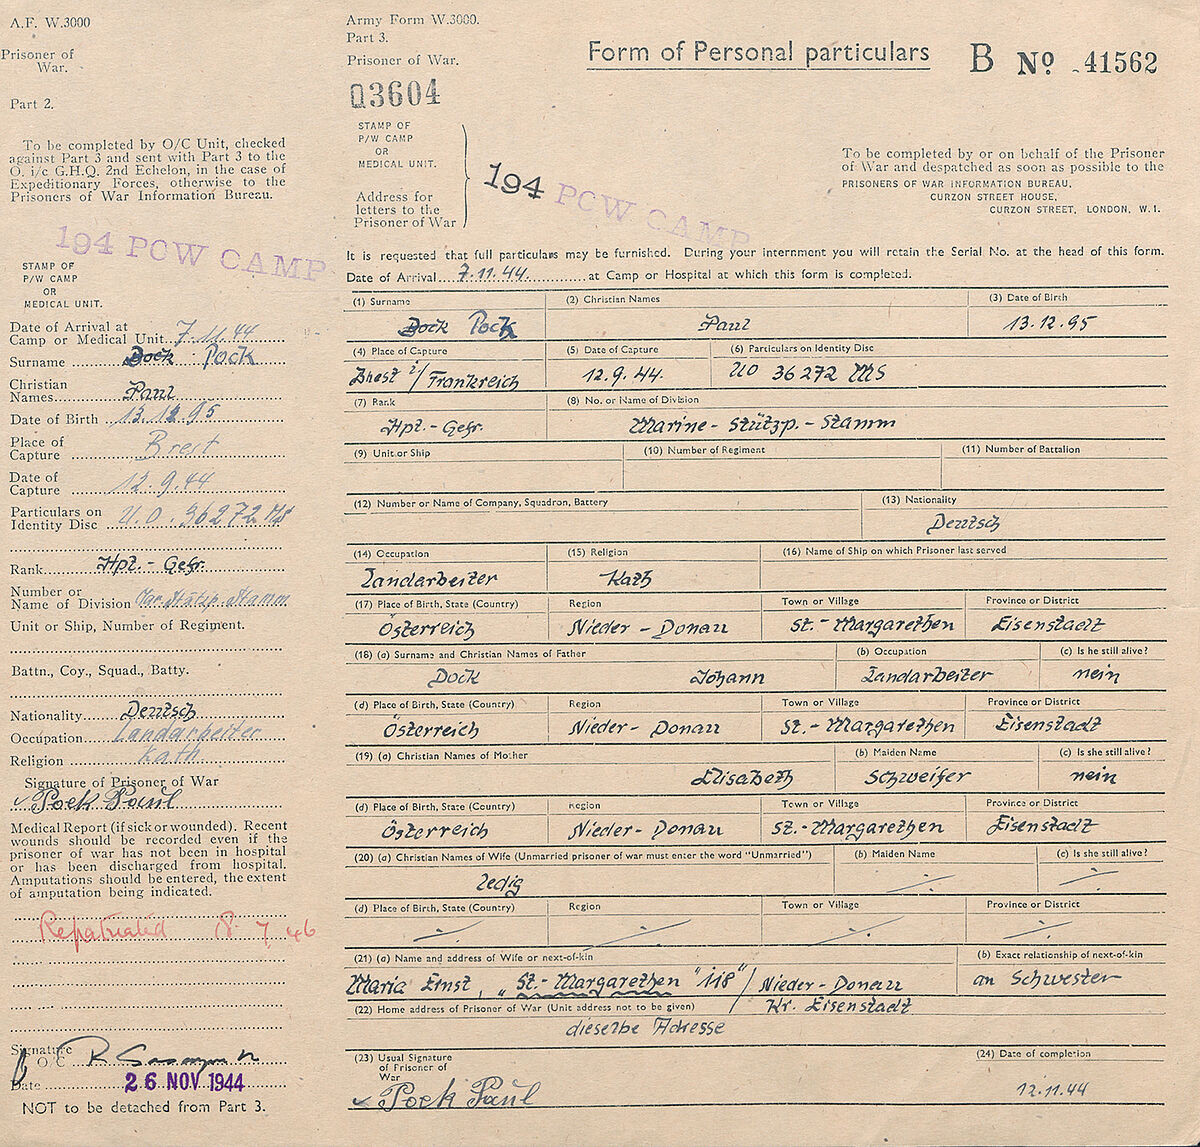 A.F. W.3000
Prisoner of
War.
Part 2.
To be completed by O/C Unit, checked
against Part 3 and sent with Part 3 to the
O. i/c G.H.Q. 2nd Echelon, in the case of
Expeditionary Forces, otherwise to the
Prisoners of War Information Bureau.
194 POW CAMP
STAMP OF
P/W CAMP
OR
MEDICAL UNIT.
Date of Arrival at
Camp or Medical Unit. 7.11.44
Surname Dock Pock
Christian
Names Paul
Date of Birth 13.12.95
Place of
Capture Brest
Date of
Capture 12.9.44
Particulars on
Identity Disc U.O. 36272 MS
Rank Hpt.-Gefr.
Number or
Name of Division Mar. Stützp. Stamm
Unit or Ship, Number of Regiment.
Battn., Coy., Squad., Batty.
Nationality Deutsch
Occupation Landarbeiter
Religion Kath
Signature of Prisoner of War
Pock Paul
Medical Report (if sick or wounded). Recent
wounds should be recorded even if the
prisoner of war has not been in hospital
or has been discharged from hospital.
Amputations should be entered, the extent
of amputation being indicated.
Repatriated 8.7.46
Signature
O/C
Date 26 NOV 1944
NOT to be detached from Part 3.
Army Form W.3000.
Part 3.
Prisoner of War.
Form of Personal particulars B No. 41562
03604
STAMP OF
P/W CAMP
OR
MEDICAL UNIT.
Address for
letters to the
Prisoner of War
194 POW CAMP
To be completed by or on behalf of the Prisoner
of War and despatched as soon as possible to the
PRISONERS OF WAR INFORMATION BUREAU,
CURZON STREET HOUSE,
CURZON STREET, LONDON, W.1.
It is requested that full particulars may be furnished. During your internment you will retain the Serial No. at the head of this form.
Date of Arrival 7.11.44 at Camp or Hospital at which this form is completed.
(1) Surname (2) Christian Names (3) Date of Birth
Dock Pock Paul 13.12.95
(4) Place of Capture (5) Date of Capture (6) Particulars on Identity Disc
Brest i/Frankreich 12.9.44. UO 36272 MS
(7) Rank (8) No. or Name of Division
Hpt.-Gefr. Marine-Stützp.-Stamm
(9) Unit or Ship (10) Number of Regiment (11) Number of Battalion
(12) Number or Name of Company, Squadron, Battery (13) Nationality
Deutsch
(14) Occupation (15) Religion (16) Name of Ship on which Prisoner last served
Landarbeiter Kath
(17) Place of Birth, State (Country) Region Town or Village Province or District
Österreich Nieder-Donau St.-Margarethen Eisenstadt
(18) (a) Surname and Christian Names of Father (b) Occupation (c) Is he still alive?
Dock Johann Landarbeiter nein
(d) Place of Birth, State (Country) Region Town or Village Province or District
Österreich Nieder-Donau St.-Margarethen Eisenstadt
(19) (a) Christian Names of Mother (b) Maiden Name (c) Is she still alive?
Elisabeth Schweifer nein
(d) Place of Birth, State (Country) Region Town or Village Province or District
Österreich Nieder-Donau St.-Margarethen Eisenstadt
(20) (a) Christian Names of Wife (Unmarried prisoner of war must enter the word "Unmarried") (b) Maiden Name (c) Is she still alive?
ledig
(d) Place of Birth, State (Country) Region Town or Village Province or District
(21) (a) Name and address of Wife or next-of-kin (b) Exact relationship of next-of-kin
Maria Ernst, "St.-Margarethen "118" / Nieder-Donau an Schwester
(22) Home address of Prisoner of War (Unit address not to be given) Kr. Eisenstadt
dieselbe Adresse
(23) Usual Signature
of Prisoner of
War
(24) Date of completion
Pock Paul 12.11.44